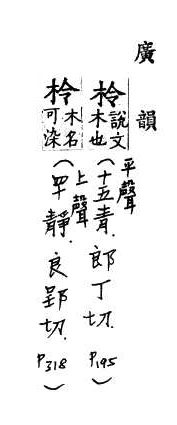 廣韻
柃 說文木也 (平聲 十五青. 郎丁切. P195)
柃 木名可染 (上聲 四十靜. 良郢切. P318)